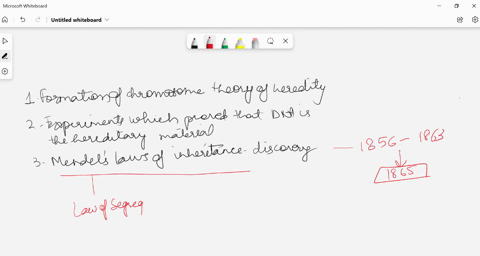 Microsoft Whiteboard
Untitled whiteboard
1. Formation of chromosome theory of heredity
2. Experiments which proved that DNA is
the hereditary material
3. Mendel's laws of inheritance discovery — 1856 - 1863
1865
Law of Segreg